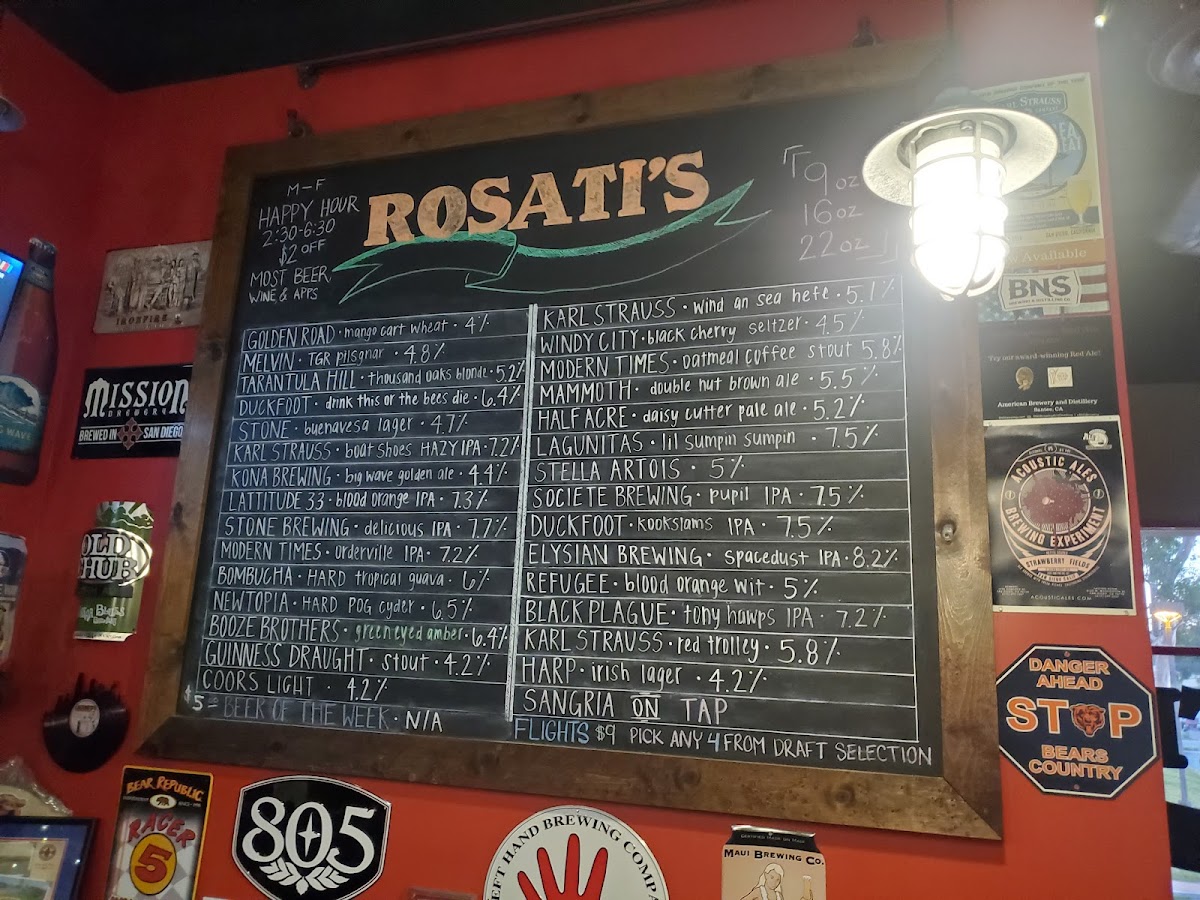 M-F
HAPPY HOUR
2:30-6:30
$2 OFF
MOST BEER
WINE, & APPS
ROSATI'S
9 oz
16 oz
22 oz
GOLDEN ROAD · mango cart wheat · 4%
MELVIN · TGR pilsgnar · 4.8%
TARANTULA HILL · thousand oaks blonde · 5.2%
DUCKFOOT · drink this or the bees die · 6.4%
STONE · buenavesa lager · 4.7%
KARL STRAUSS · boat shoes HAZY IPA · 7.2%
KONA BREWING · big wave golden ale · 4.4%
LATTITUDE 33 · blood orange IPA · 7.3%
STONE BREWING · delicious IPA · 7.7%
MODERN TIMES · orderville IPA · 7.2%
BOMBUCHA · HARD tropical guava · 6%
NEWTOPIA · HARD POG cyder · 6.5%
BOOZE BROTHERS · green eyed amber · 6.4%
GUINNESS DRAUGHT · stout · 4.2%
COORS LIGHT · 4.2%
$5 = BEER OF THE WEEK · N/A
KARL STRAUSS · wind an sea hefe · 5.1%
WINDY CITY · black cherry seltzer · 4.5%
MODERN TIMES · oatmeal coffee stout 5.8%
MAMMOTH · double nut brown ale · 5.5%
HALF ACRE · daisy cutter pale ale · 5.2%
LAGUNITAS · lil sumpin sumpin · 7.5%
STELLA ARTOIS · 5%
SOCIETE BREWING · pupil IPA · 7.5%
DUCKFOOT · kookslams IPA · 7.5%
ELYSIAN BREWING · spacedust IPA · 8.2%
REFUGEE · blood orange wit · 5%
BLACK PLAGUE · tony hawps IPA · 7.2%
KARL STRAUSS · red trolley · 5.8%
HARP · irish lager · 4.2%
SANGRIA ON TAP
FLIGHTS $9 PICK ANY 4 FROM DRAFT SELECTION
IRONFIRE
MISSION
BREWERY
BREWED IN SAN DIEGO
WAVE
OLD
CHUB
BEAR REPUBLIC
RACER
5
805
LEFT HAND BREWING COMPANY
MAUI BREWING CO.
STRAUSS
Available
BNS
BREWING & DISTILLING CO
Try our award-winning Red Ale!
American Brewery and Distillery
Santee, CA
ACOUSTIC ALES
BREWING EXPERIMENT
STRAWBERRY FIELDS
ACOUSTICALES.COM
DANGER
AHEAD
STOP
BEARS
COUNTRY